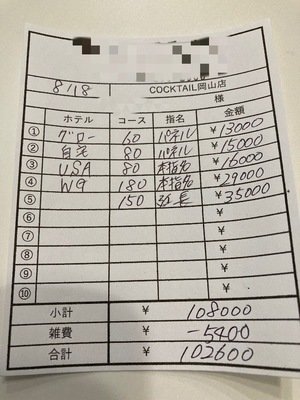 8/18 COCKTAIL岡山店
様
ホテル コース 指名 金額
① グロー 60 パネル ¥13000
② 自宅 80 パネル ¥15000
③ USA 80 本指名 ¥16000
④ W9 180 本指名 ¥29000
⑤ 150 延長 ¥35000
⑥
⑦
⑧
⑨
⑩
小計 ¥ 108000
雑費 ¥ -5400
合計 ¥ 102600